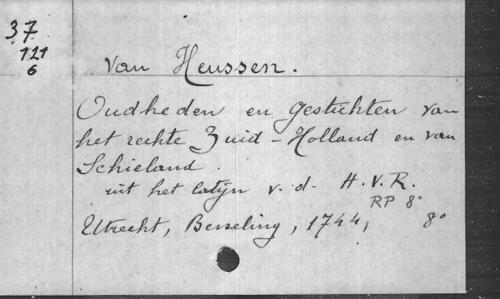 37
121
6
van Heussen.
Oudheden en gestichten van
het rechte Zuid-Holland en van
Schieland.
uit het latijn v. d. H. v. R.
RP 8°
Utrecht, Besseling, 1744, 8°